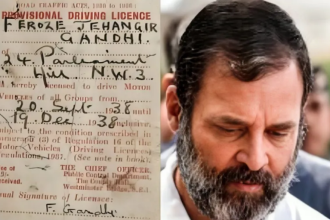 ROAD TRAFFIC ACTS, 1930 to 1936
PROVISIONAL DRIVING LICENCE
FEROZE JEHANGIR
GANDHI.
24. Parliament
Hill N.W.3
is hereby licensed to drive MOTOR
VEHICLES of all Groups from
20. Sept 1938
19 Dec 1938 inclusive
subject to the condition prescribed in
Regulation 16 of the
Motor Vehicles (Driving Licences)
Regulations, 1937. (See note in book)
THE CHIEF OFFICER,
Public Control Department,
The County Hall,
Westminster Bridge, S.E.1
Usual Signature of Licensee:
F. Gandhi